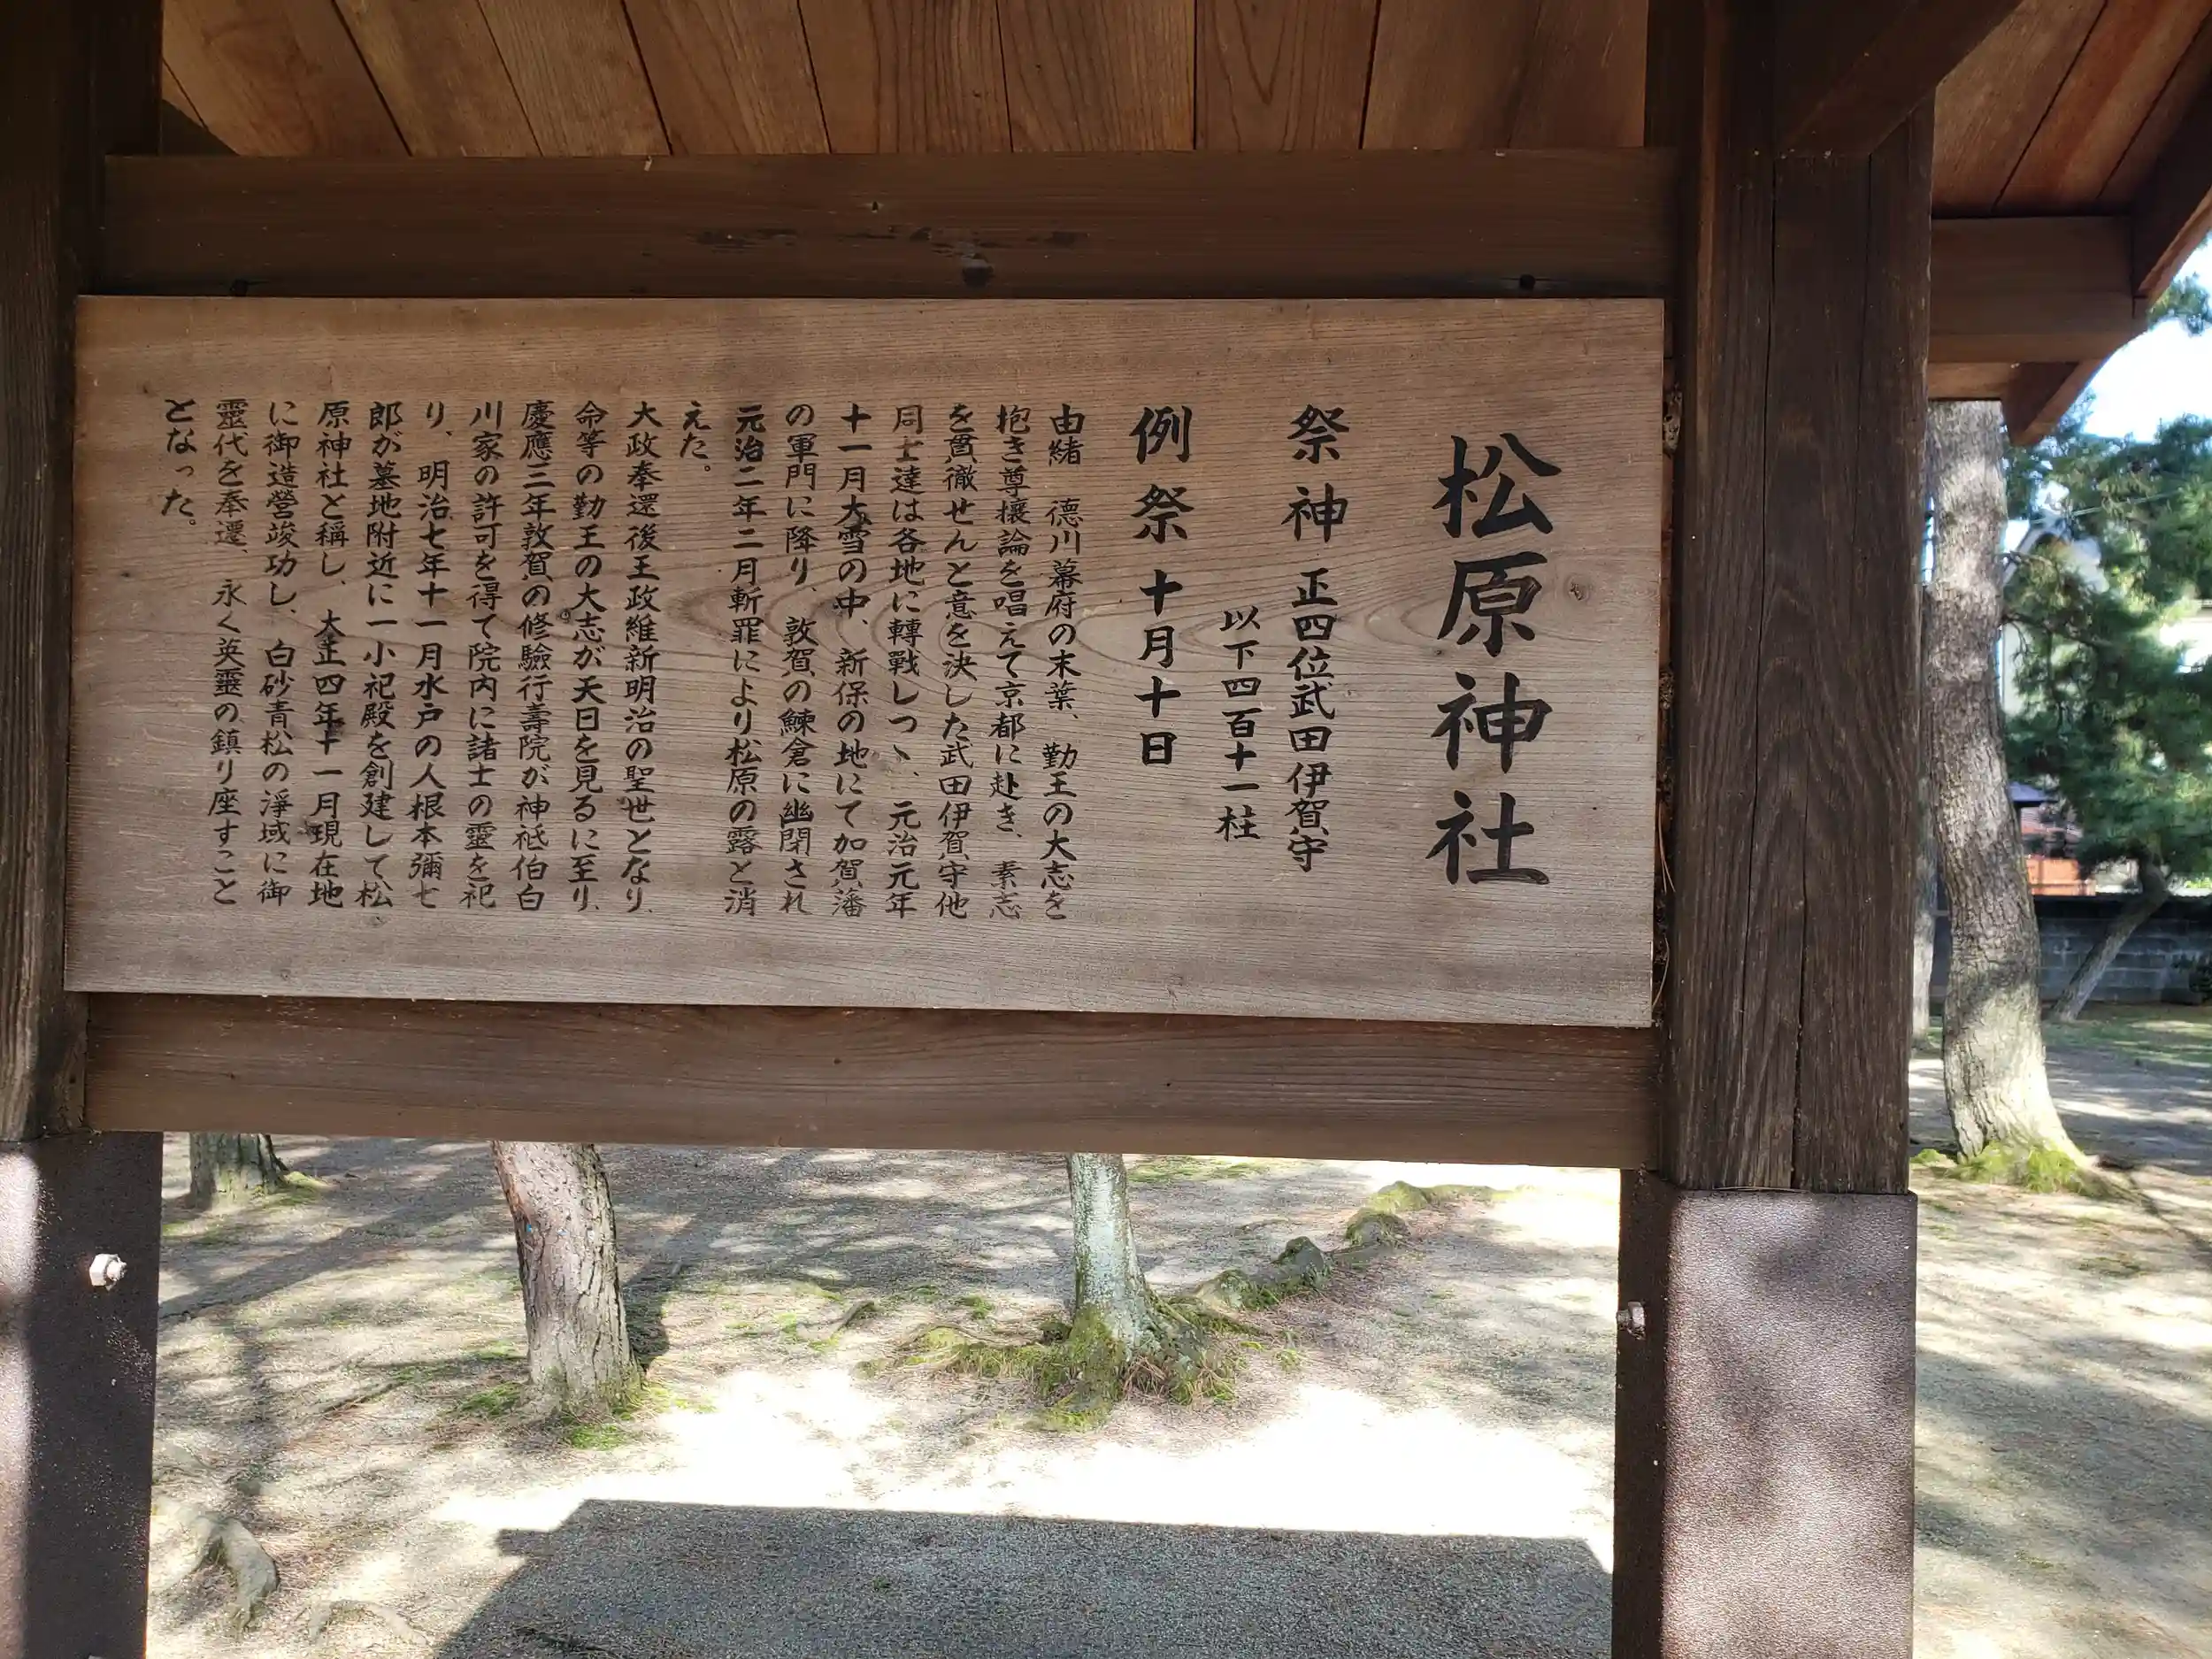 松原神社
祭神 正四位武田伊賀守
以下四百十一柱
例祭 十月十日
由緒 德川幕府の末葉、勤王の大志を
抱き尊攘論を唱えて京都に赴き、素志
を貫徹せんと意を決した武田伊賀守他
同士達は各地に轉戰しつゝ、元治元年
十一月大雪の中、新保の地にて加賀藩
の軍門に降り、敦賀の鰊倉に幽閉され
元治二年二月斬罪により松原の露と消
えた。
大政奉還後王政維新明治の聖世となり、
命等の勤王の大志が天日を見るに至り、
慶應三年敦賀の修驗行壽院が神祗伯白
川家の許可を得て院内に諸士の靈を祀
り、明治七年十一月水戸の人根本彌七
郎が墓地附近に一小祀殿を創建して松
原神社と稱し、大正四年十一月現在地
に御造營竣功し、白砂青松の淨域に御
靈代を奉遷、永く英靈の鎮り座すこと
となった。